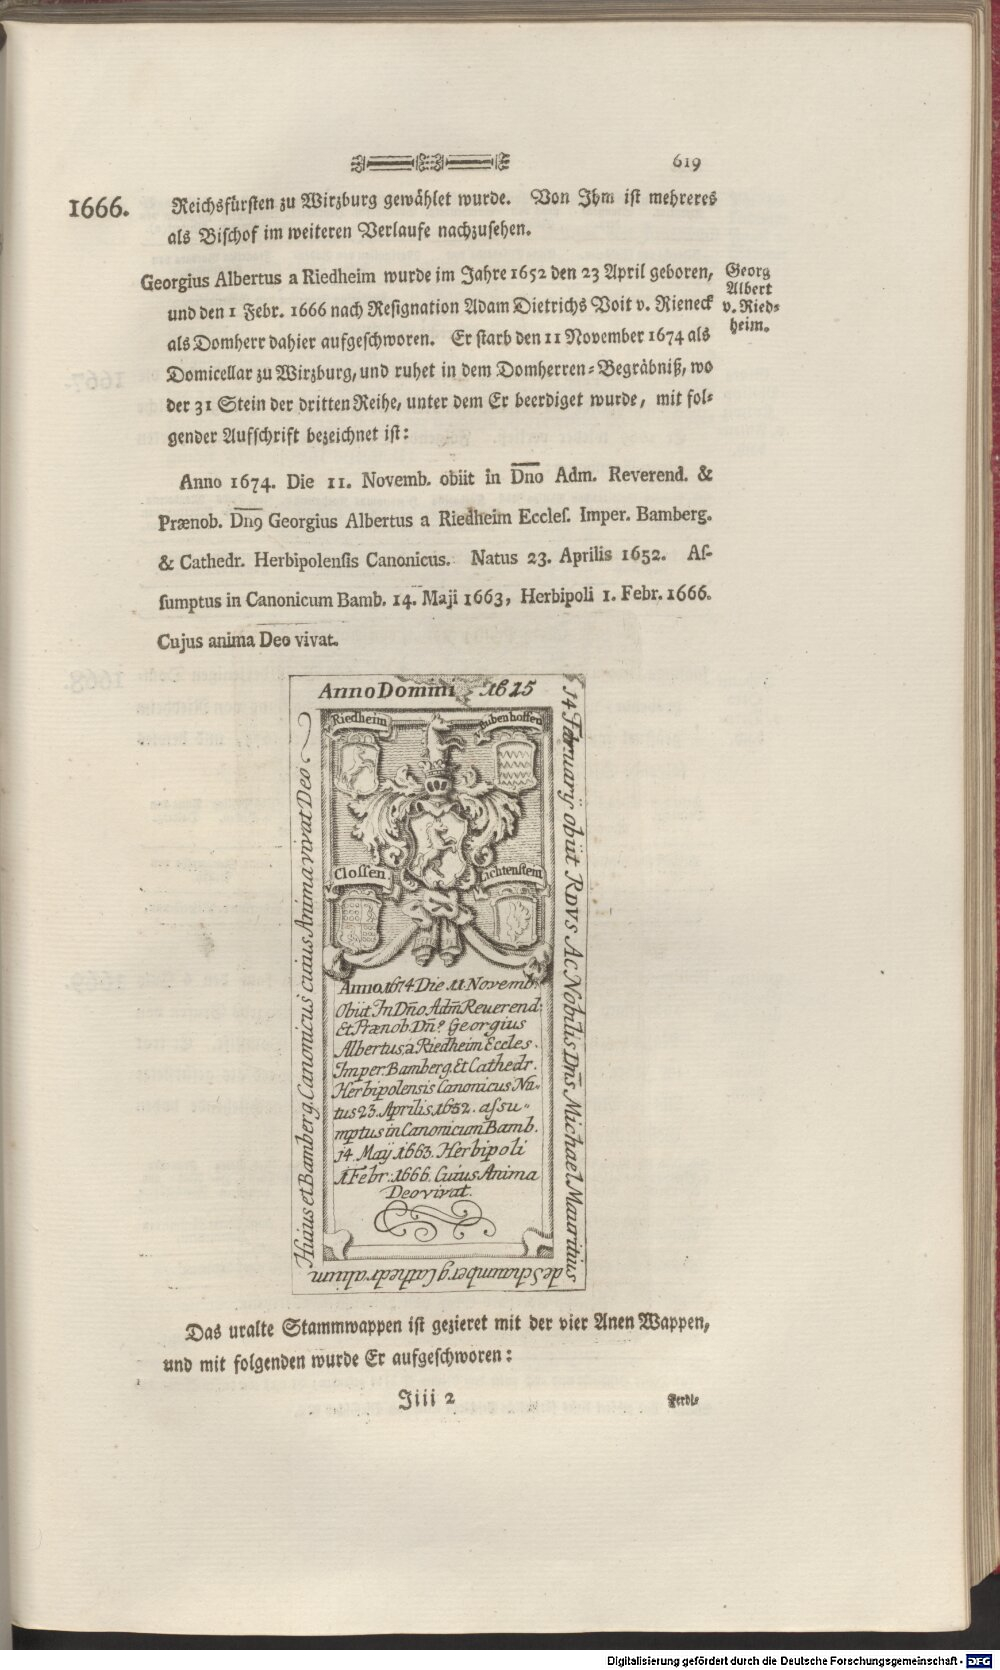 619
1666.
Reichsfürsten zu Wirzburg gewählet wurde. Von Ihm ist mehreres
als Bischof im weiteren Verlaufe nachzusehen.
Georgius Albertus a Riedheim wurde im Jahre 1652 den 23 April geboren,
und den 1 Febr. 1666 nach Resignation Adam Dietrichs Voit v. Rieneck
als Domherr dahier aufgeschworen. Er starb den 11 November 1674 als
Domicellar zu Wirzburg, und ruhet in dem Domherren-Begräbniß, wo
der 31 Stein der dritten Reihe, unter dem Er beerdiget wurde, mit fol-
gender Aufschrift bezeichnet ist:
Georg
Albert
v. Ried-
heim.
Anno 1674. Die 11. Novemb. obiit in Dn̅o Adm. Reverend. &
Prænob. Dn̅9 Georgius Albertus a Riedheim Eccleſ. Imper. Bamberg.
& Cathedr. Herbipolenſis Canonicus. Natus 23. Aprilis 1652. Aſ-
ſumptus in Canonicum Bamb. 14. Maji 1663, Herbipoli 1. Febr. 1666.
Cujus anima Deo vivat.
Anno Domini 1615
14 Februarÿ obiit RDVS Ac Nobilis Dn̅s Michael Mauritius
de Schaumberg Cathedralium
Huius et Bamberg. Canonicus cuius Anima vivat Deo
Riedheim
Bubenhoffen
Cloſſen.
Lichtenstein
Anno 1674 Die 11 Novemb.
Obiit In Dn̅o Adm̅ Reuerend:
Et Prænob. Dn̅9 Georgius
Albertus à Riedheim Eccles.
Imper. Bamberg. Et Cathedr.
Herbipolensis Canonicus Na-
tus 23. Aprilis, 1652. aſsu-
mptus in Canonicum Bamb.
14. Maÿ 1663. Herbipoli
1 Febr. 1666. Cuius Anima
Deo vivat.
Das uralte Stammwappen ist gezieret mit der vier Anen Wappen,
und mit folgenden wurde Er aufgeschworen:
Iiii 2
Ferdi-
Digitalisierung gefördert durch die Deutsche Forschungsgemeinschaft - DFG